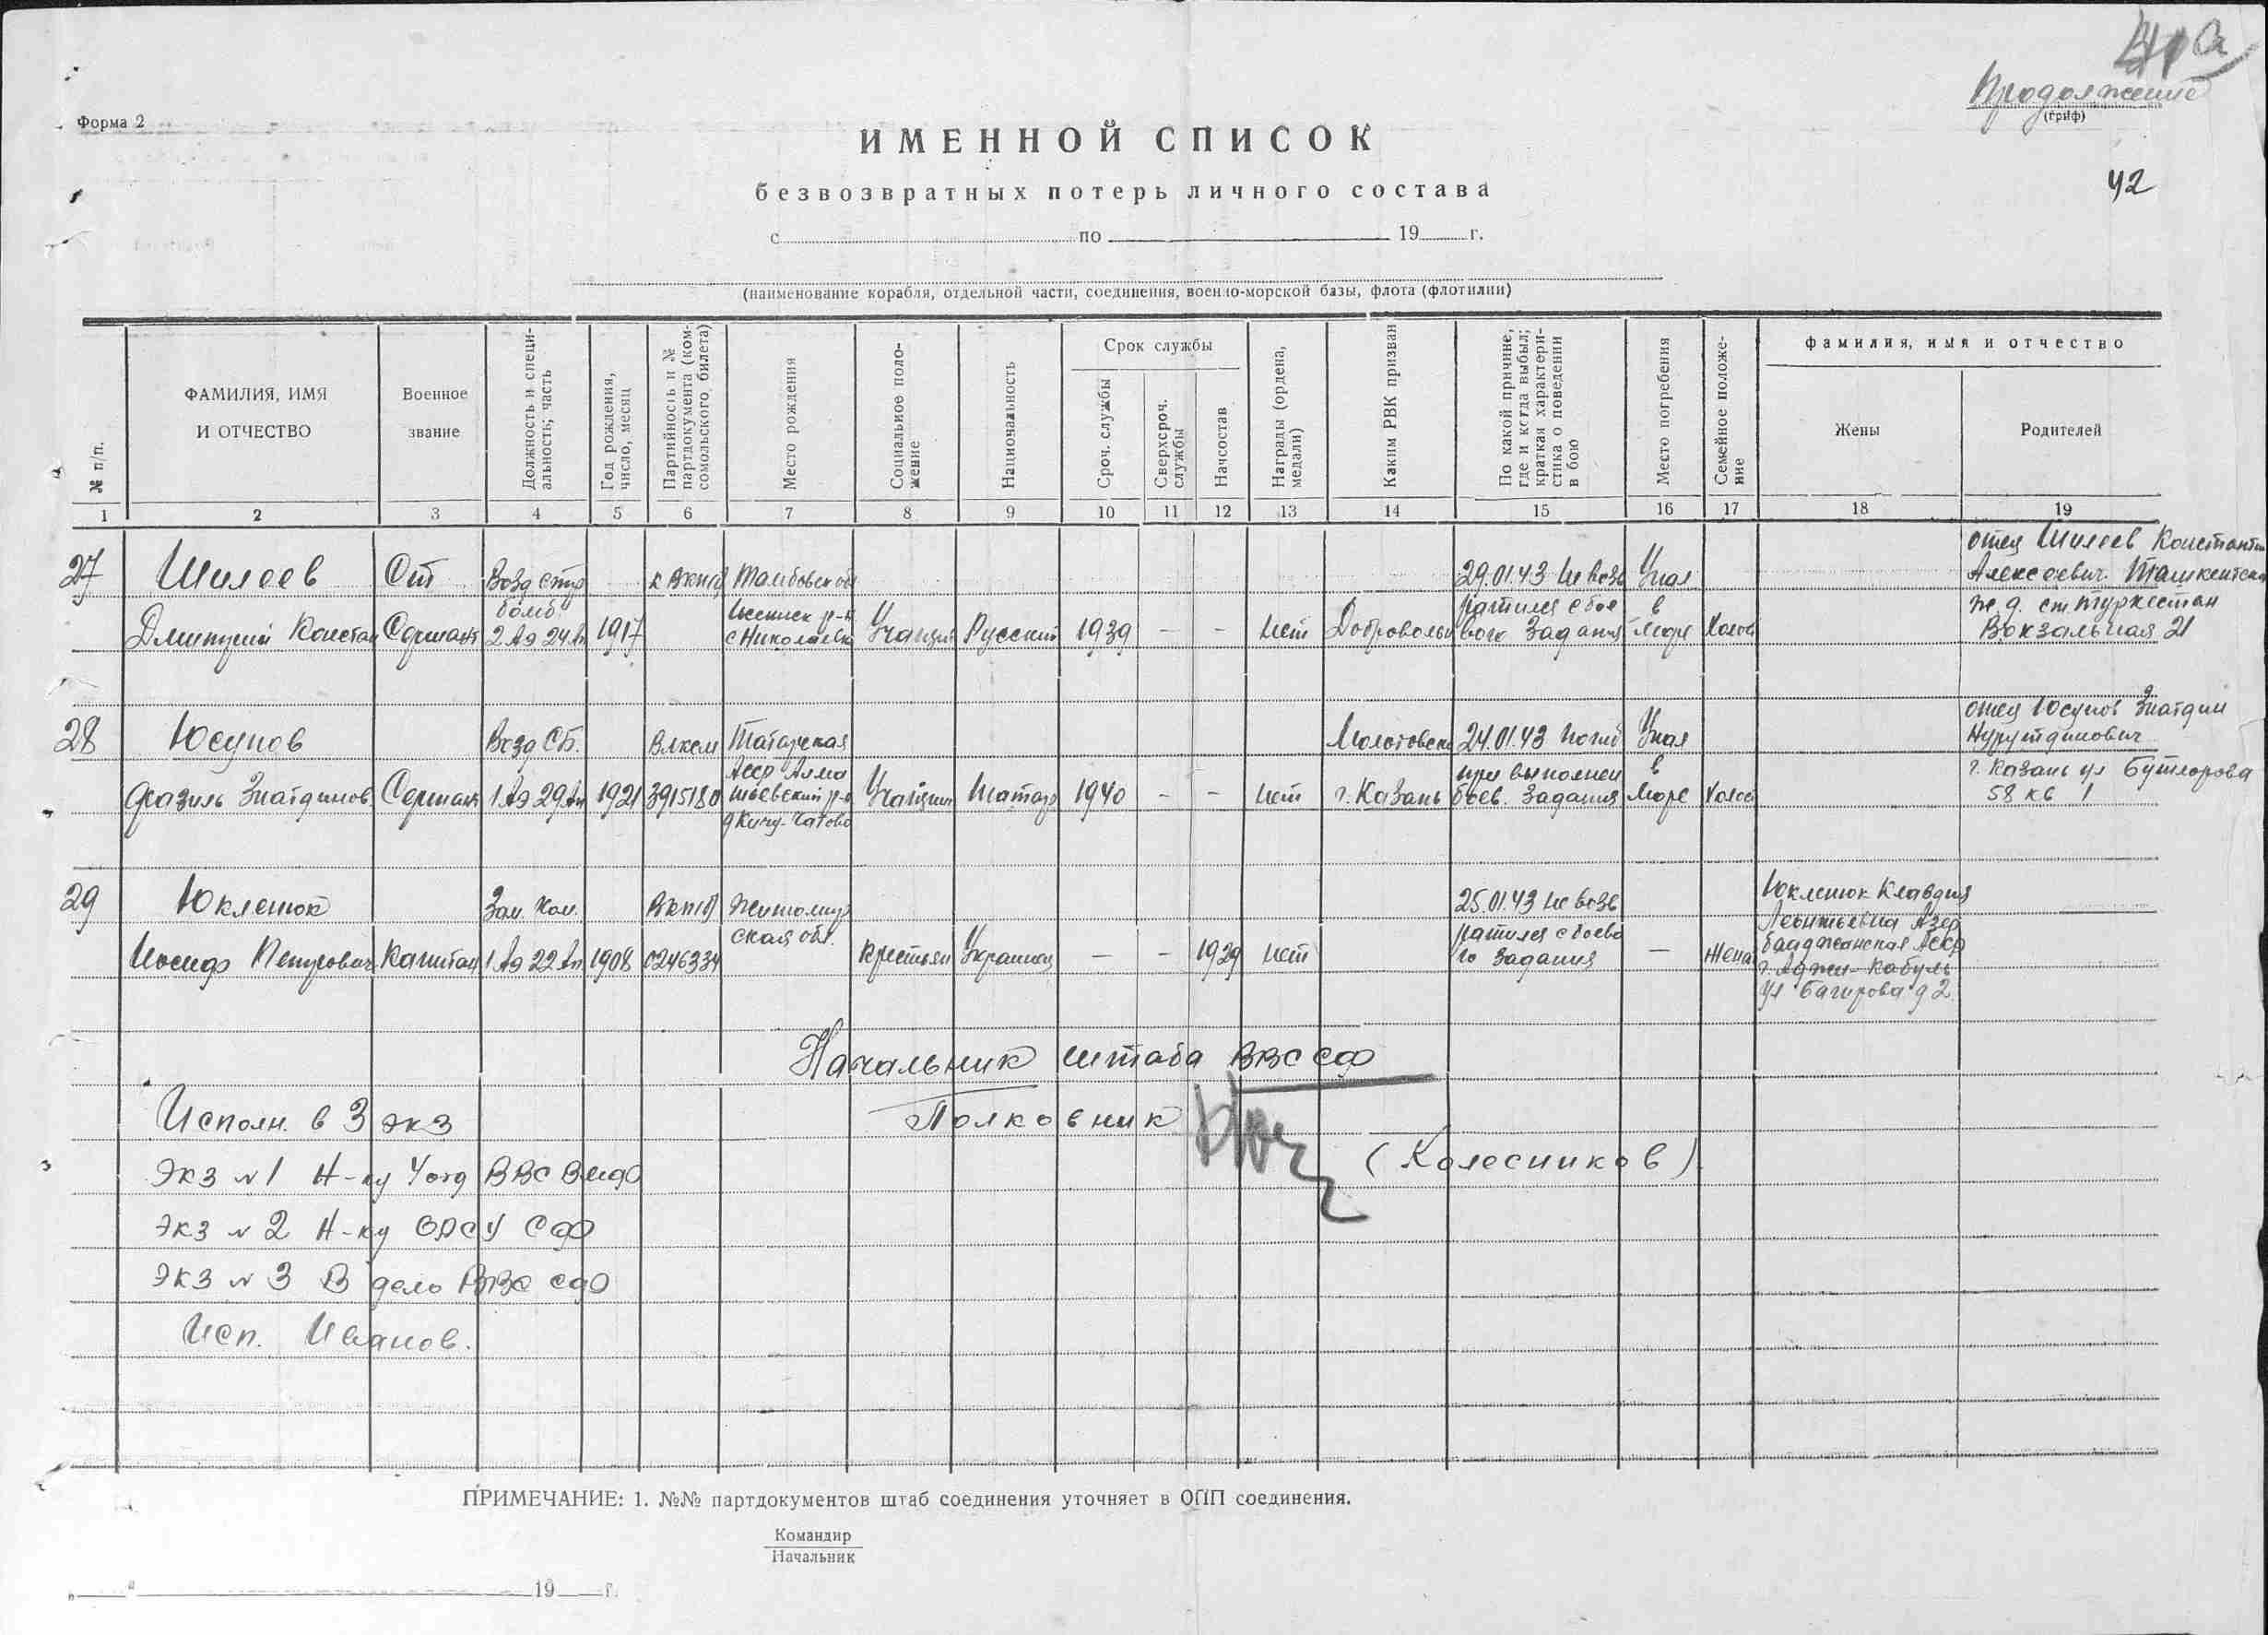 Продолжение
(гриф)
Форма 2
42
ИМЕННОЙ СПИСОК
безвозвратных потерь личного состава
с по 19 г.
(наименование корабля, отдельной части, соединения, военно-морской базы, флота (флотилии)
№ п/п.
ФАМИЛИЯ, ИМЯ
И ОТЧЕСТВО
Военное
звание
Должность и специ-
альность; часть
Год рождения,
число, месяц
Партийность и №
партдокумента (ком-
сомольского, билета)
Место рождения
Социальное поло-
жение
Национальность
Срок службы
Сроч. службы
Сверхсроч.
службы
Начсостав
Награды (ордена,
медали)
Каким РВК призван
По какой причине,
где и когда выбыл;
краткая характери-
стика о поведении
в бою
Место погребения
Семейное положе-
ние
фамилия, имя и отчество
Жены
Родителей
1 2 3 4 5 6 7 8 9 10 11 12 13 14 15 16 17 18 19
27
Шилоев
Дмитрий Констан
Ст
Сержант
Возд стр
бомб
2 Аэ 24 Ап
1917
к ВКП(б)
Тамбовск об
р-н
с Николаевка
Учащия
Русский
1939
—
-
нет
Добровольн
29.01.43 не возв
ратился с бое
вого задания
Упал
в
море
Холос
отец Шилоев Константин
Алексеевич. Ташкентская
ж.д. ст. Туркестан
Вокзальная 21
28
Юсупов
Фазиль Зиатдинов
Сержант
Возд СБ.
1 Аэ 29 Ап
1921
ВЛКСМ
3915180
Татарская
Асср Альма
тьевский р-н
д Кичу-Чатово
Учащии
Татар
1940
-
-
нет
Молотовски
г. Казань
24.01.43 погиб
при выполнен
боев. задания
Упал
в
море
Холос
отец Юсупов Зиатдин
Нурутдинович
г. Казань ул Бутлерова
58 кв 1
29
Юкленюк
Иосиф Петрович
Капитан
Зам. Ком.
1 Аэ 22 Ап
1908
ВКП(б)
0246334
Житомир
ская обл.
Крестьян
Украинец
—
-
1929
нет
25.01.43 не возв
ратился с боево
го задания
—
жена
Юкленюк Клавдия
Леонтьевна Азер
байджанская Асср
г. Аджи-Кабуль
ул Багирова д 2
Начальник штаба ВВС СФ
Полковник
(Колесников)
Исполн. в 3 экз
Экз № 1 Н-ку 4 отд ВВС ВМФ
Экз № 2 Н-ку ОРСУ СФ
Экз № 3 В дело ВВС СФ
Исп. Иванов.
ПРИМЕЧАНИЕ: 1. №№ партдокументов штаб соединения уточняет в ОПП соединения.
Командир
Начальник
„ “ 19 г.